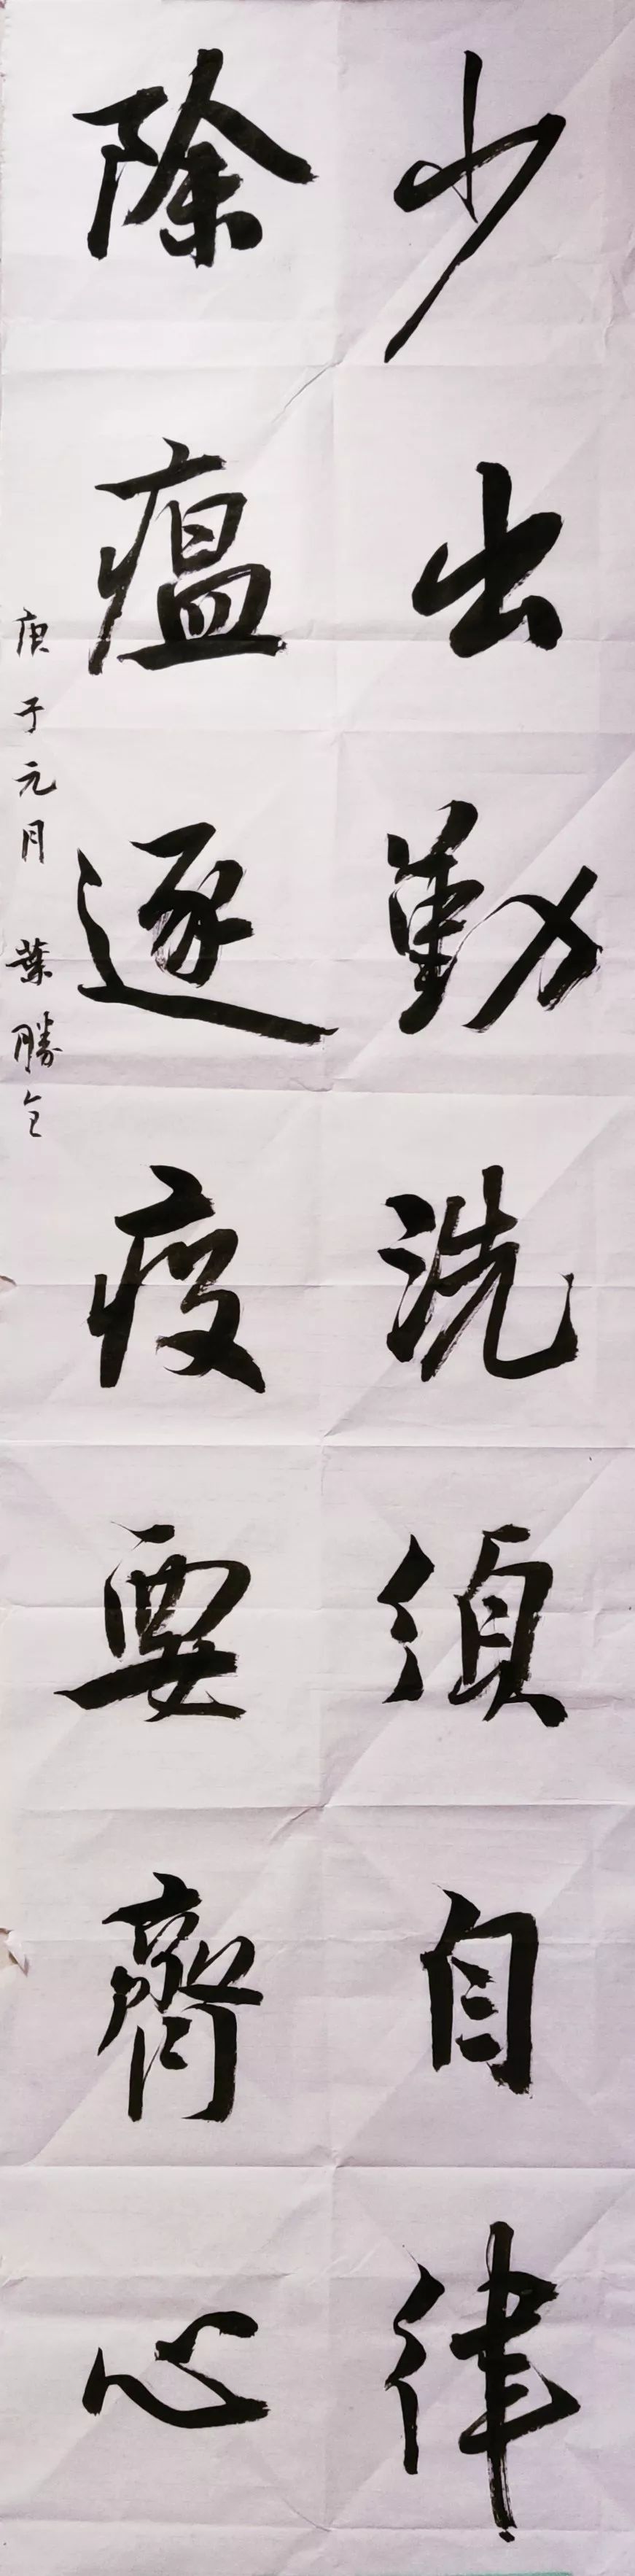 少出勤洗須自律
除瘟逐疫要齊心
庚子元月 葉勝